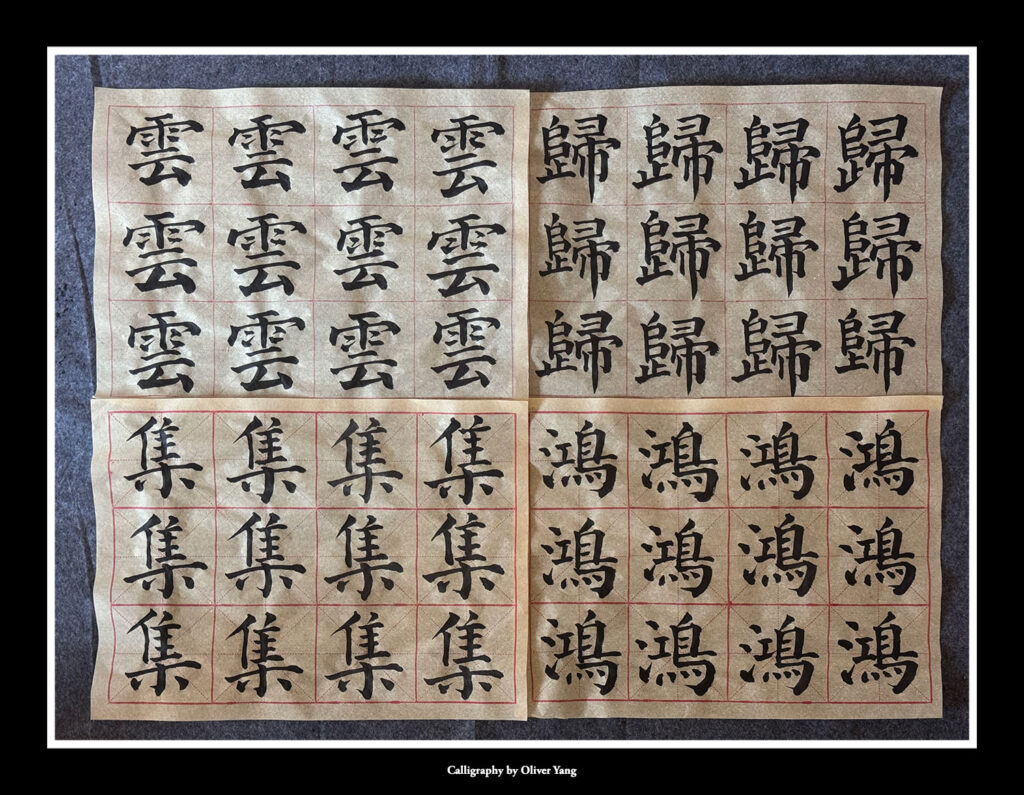 雲雲雲雲
雲雲雲雲
雲雲雲雲
歸歸歸歸
歸歸歸歸
歸歸歸歸
集集集集
集集集集
集集集集
鴻鴻鴻鴻
鴻鴻鴻鴻
鴻鴻鴻鴻
Calligraphy by Oliver Yang